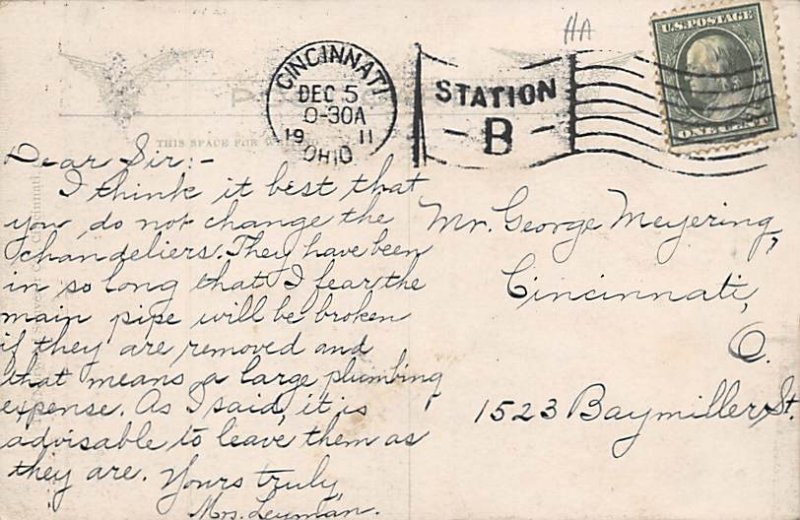 HA
U.S. POSTAGE
ONE CENT
CINCINNATI
DEC 5
0-30A
19 11
OHIO
STATION
- B -
THIS SPACE FOR
Dear Sir:-
I think it best that
you do not change the
chandeliers. They have been
in so long that I fear the
main pipe will be broken
if they are removed and
that means a large plumbing
expense. As I said, it is
advisable to leave them as
they are. Yours truly,
Mrs. Leuman.
Mr. George Meyering,
Cincinnati,
O.
1523 Baymiller St.